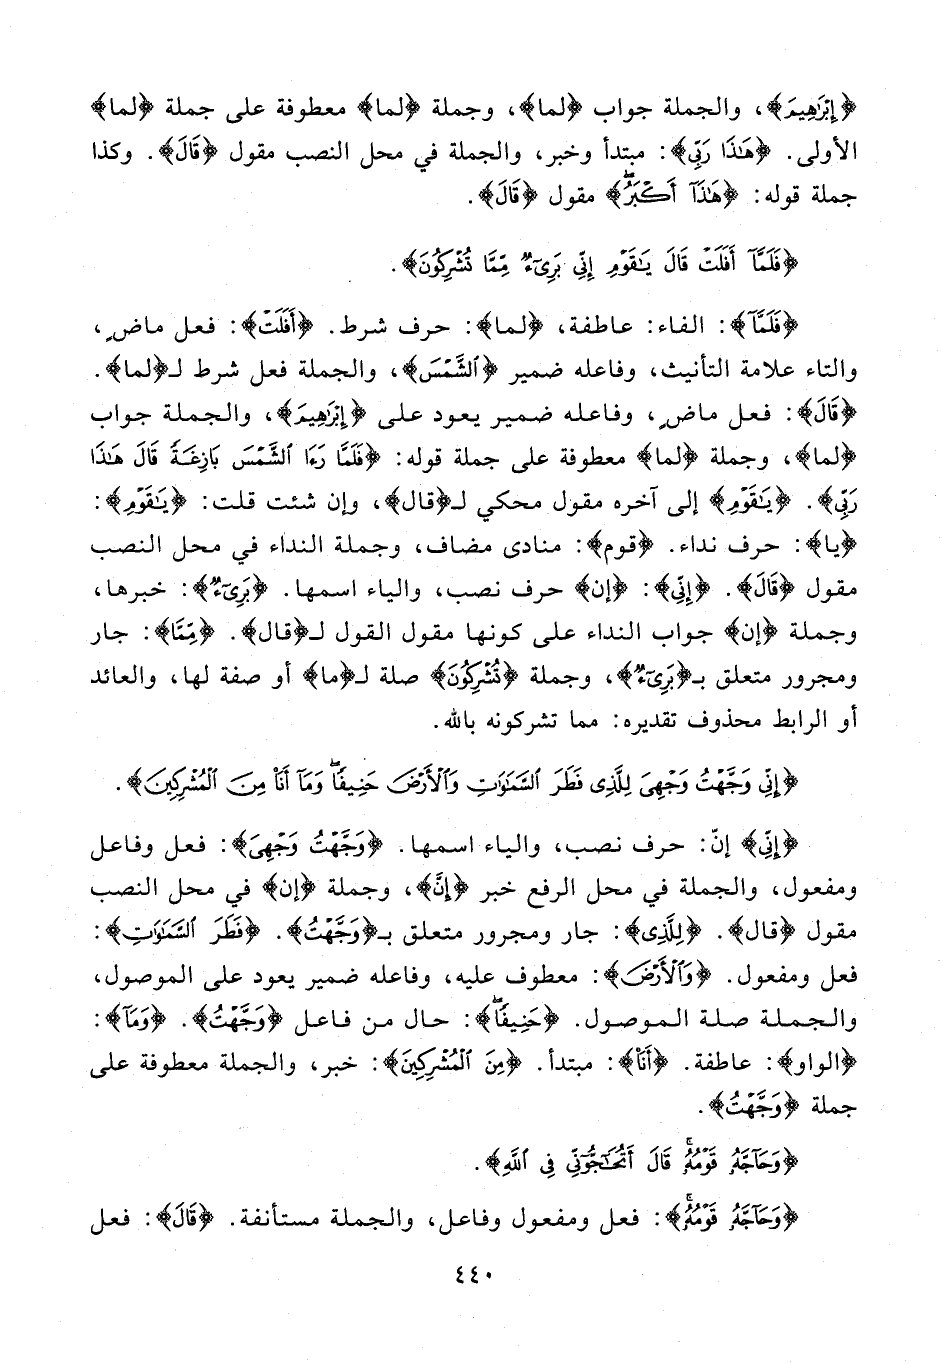 ﴿إِبْرَاهِيمَ﴾، والجملة جواب ﴿لما﴾، وجملة ﴿لما﴾ معطوفة على جملة ﴿لما﴾
الأولى. ﴿هَٰذَا رَبِّي﴾: مبتدأ وخبر، والجملة في محل النصب مقول ﴿قَالَ﴾. وكذا
جملة قوله: ﴿هَٰذَآ أَكْبَرُۖ﴾ مقول ﴿قَالَ﴾.
﴿فَلَمَّآ أَفَلَتْ قَالَ يَٰقَوْمِ إِنِّي بَرِىٓءٌ مِّمَّا تُشْرِكُونَ﴾.
﴿فَلَمَّآ﴾: الفاء: عاطفة، ﴿لما﴾: حرف شرط. ﴿أَفَلَتْ﴾: فعل ماضٍ،
والتاء علامة التأنيث، وفاعله ضمير ﴿ٱلشَّمْسَ﴾، والجملة فعل شرط لـ﴿لما﴾.
﴿قَالَ﴾: فعل ماضٍ، وفاعله ضمير يعود على ﴿إِبْرَٰهِيمَ﴾، والجملة جواب
﴿لما﴾، وجملة ﴿لما﴾ معطوفة على جملة قوله: ﴿فَلَمَّا رَءَا ٱلشَّمْسَ بَازِغَةً قَالَ هَٰذَا
رَبِّي﴾. ﴿يَٰقَوْمِ﴾ إلى آخره مقول محكي لـ﴿قال﴾، وإن شئت قلت: ﴿يَٰقَوْمِ﴾:
﴿يا﴾: حرف نداء. ﴿قوم﴾: منادى مضاف، وجملة النداء في محل النصب
مقول ﴿قَالَ﴾. ﴿إِنِّي﴾: ﴿إن﴾ حرف نصب، والياء اسمها. ﴿بَرِىٓءٌ﴾: خبرها،
وجملة ﴿إن﴾ جواب النداء على كونها مقول القول لـ﴿قال﴾. ﴿مِّمَّا﴾: جار
ومجرور متعلق بـ﴿بَرِىٓءٌ﴾، وجملة ﴿تُشْرِكُونَ﴾ صلة لـ﴿ما﴾ أو صفة لها، والعائد
أو الرابط محذوف تقديره: مما تشركونه بالله.
﴿إِنِّي وَجَّهْتُ وَجْهِيَ لِلَّذِي فَطَرَ ٱلسَّمَٰوَٰتِ وَٱلْأَرْضَ حَنِيفًاۖ وَمَآ أَنَا۠ مِنَ ٱلْمُشْرِكِينَ﴾.
﴿إِنِّي﴾ إنّ: حرف نصب، والياء اسمها. ﴿وَجَّهْتُ وَجْهِيَ﴾: فعل وفاعل
ومفعول، والجملة في محل الرفع خبر ﴿إِنَّ﴾، وجملة ﴿إن﴾ في محل النصب
مقول ﴿قال﴾. ﴿لِلَّذِي﴾: جار ومجرور متعلق بـ﴿وَجَّهْتُ﴾. ﴿فَطَرَ ٱلسَّمَٰوَٰتِ﴾:
فعل ومفعول. ﴿وَٱلْأَرْضَ﴾: معطوف عليه، وفاعله ضمير يعود على الموصول،
والجملة صلة الموصول. ﴿حَنِيفًاۖ﴾: حال من فاعل ﴿وَجَّهْتُ﴾. ﴿وَمَآ﴾:
﴿الواو﴾: عاطفة. ﴿أَنَا۠﴾: مبتدأ. ﴿مِنَ ٱلْمُشْرِكِينَ﴾: خبر، والجملة معطوفة على
جملة ﴿وَجَّهْتُ﴾.
﴿وَحَآجَّهُۥ قَوْمُهُۥۚ قَالَ أَتُحَٰٓجُّوٓنِّي فِي ٱللَّهِ﴾.
﴿وَحَآجَّهُۥ قَوْمُهُۥۚ﴾: فعل ومفعول وفاعل، والجملة مستأنفة. ﴿قَالَ﴾: فعل
٤٤٠